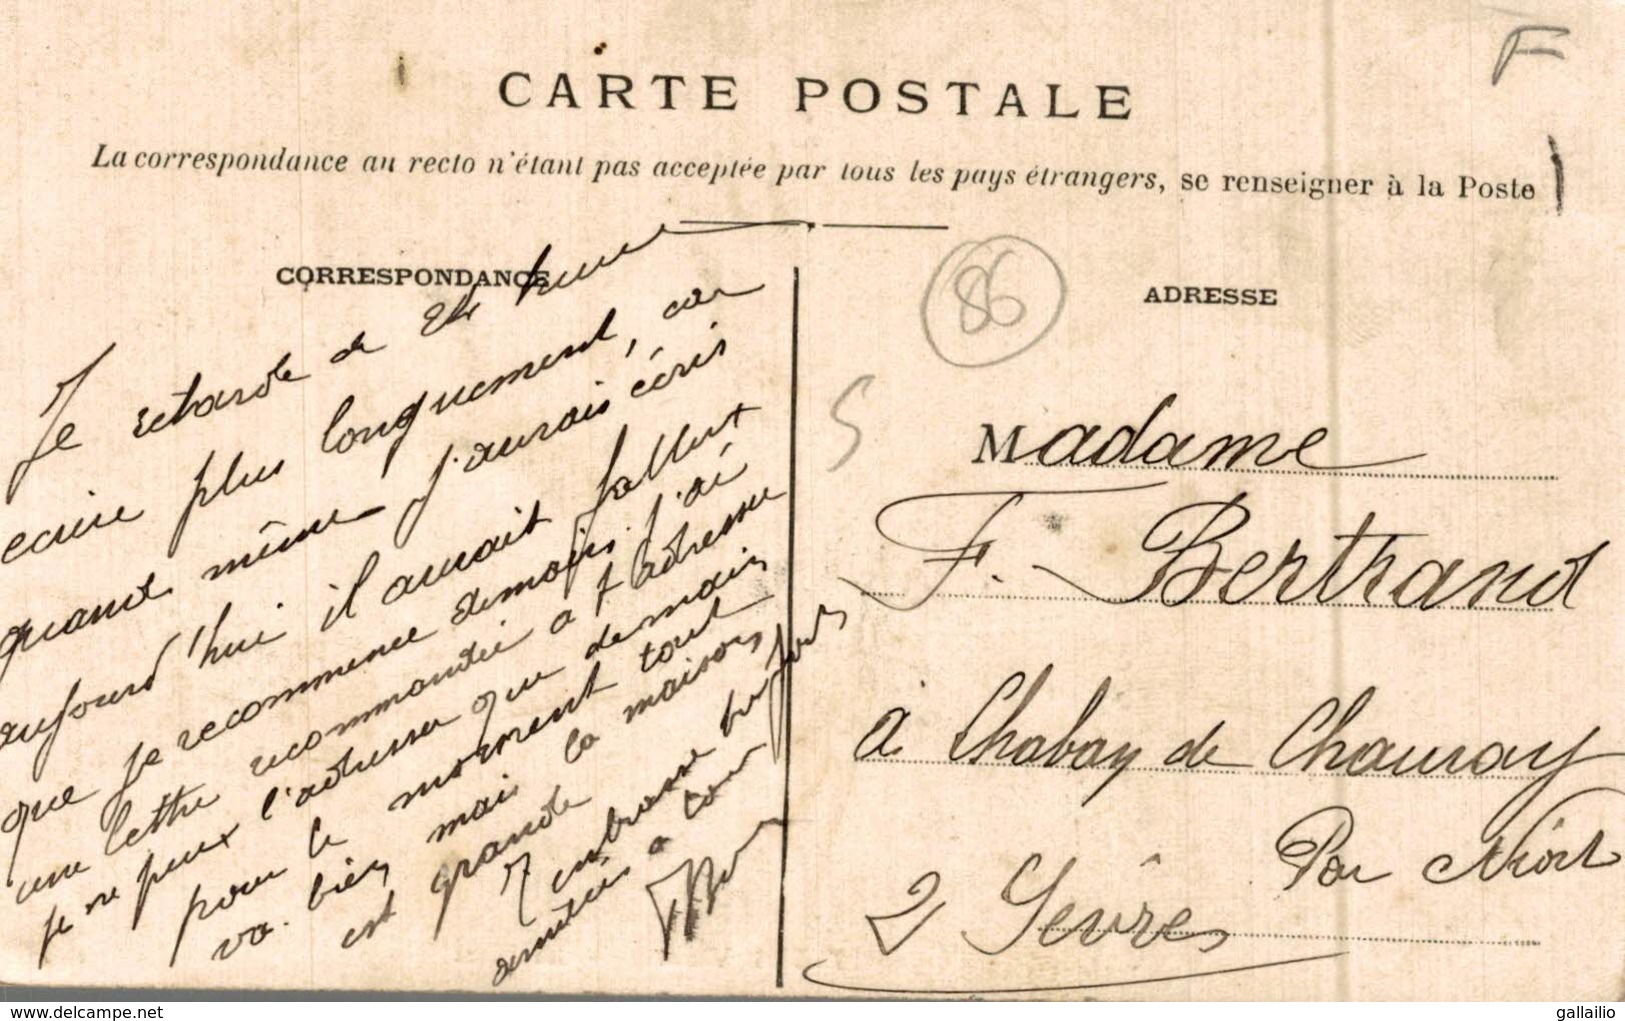 F
CARTE POSTALE
La correspondance au recto n'étant pas acceptée par tous les pays étrangers, se renseigner à la Poste
CORRESPONDANCE
Je retarde de 24 heures
ecrire plus longuement, car
quand même j'aurais écris
aujourd'hui il aurait fallut
que je recommence demain j'ai
une lettre recommandée a t'adresser
je ne peux l'adresser que demain
pour le moment tout
va bien mais la maison
est grande
T'embrasse bien fort
amitiés a tous
86
ADRESSE
5
Madame
F. Bertrand
à Chabay de Chauray
Par Niort
2 Sèvres
www.delcampe.net
gallailio